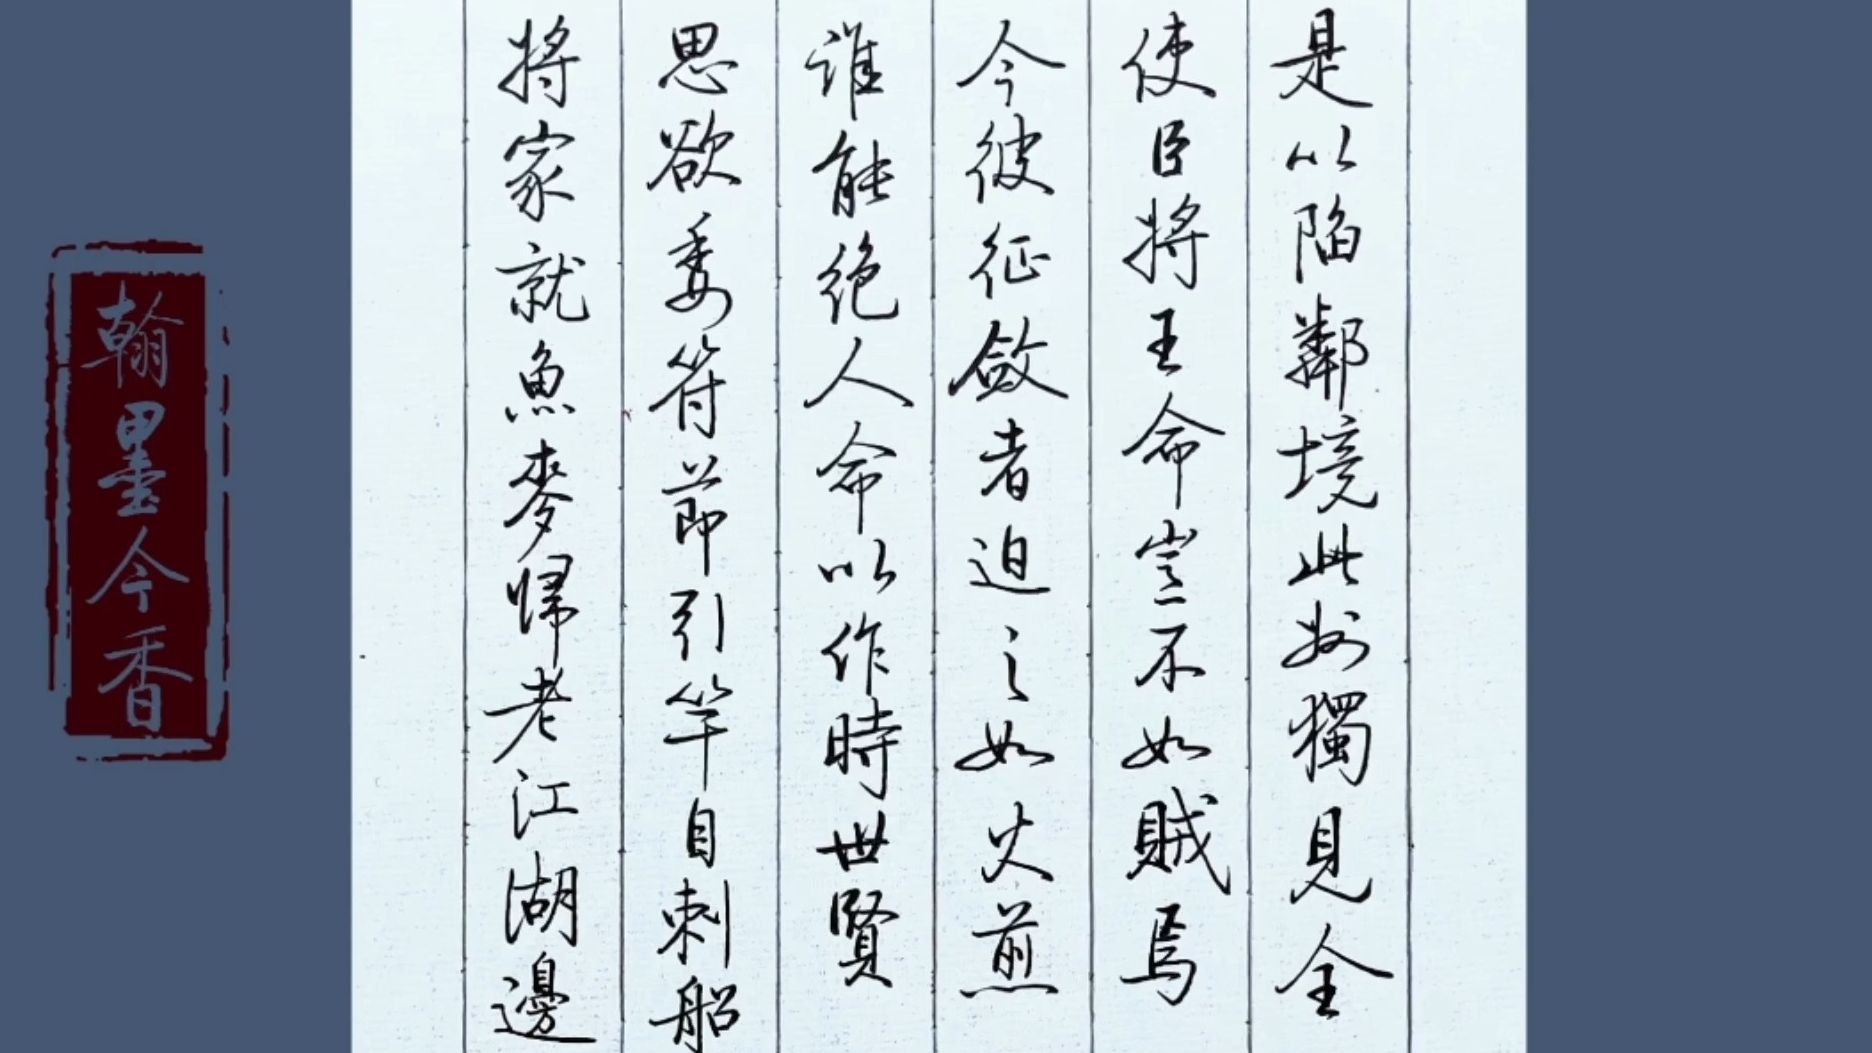 是以陷鄰境此州獨見全
使臣將王命豈不如賊焉
今彼征斂者迫之如火煎
誰能絕人命以作時世賢
思欲委符節引竿自刺船
將家就魚麥歸老江湖邊
翰墨今香